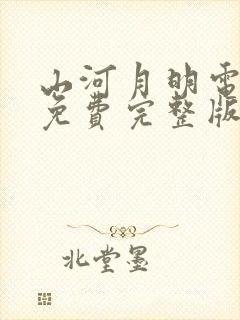 山河月明电
免费完整版
北堂墨